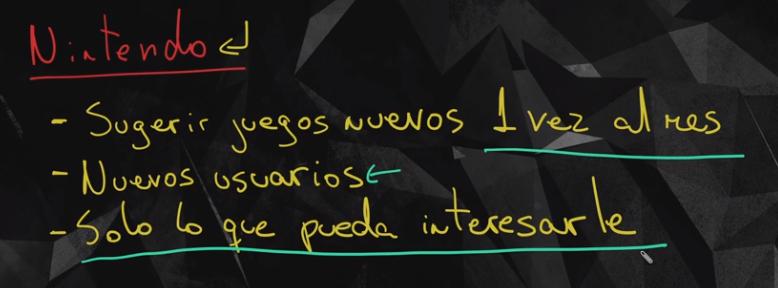 Nintendo ↲
- Sugerir juegos nuevos 1 vez al mes
- Nuevos usuarios ←
- Solo lo que pueda interesarle